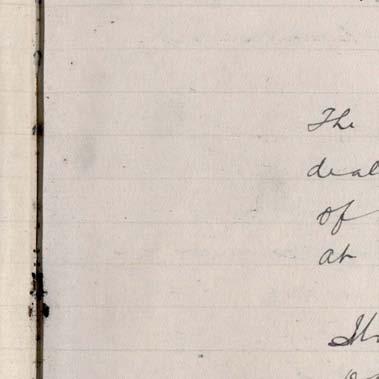 The
deal
of
at